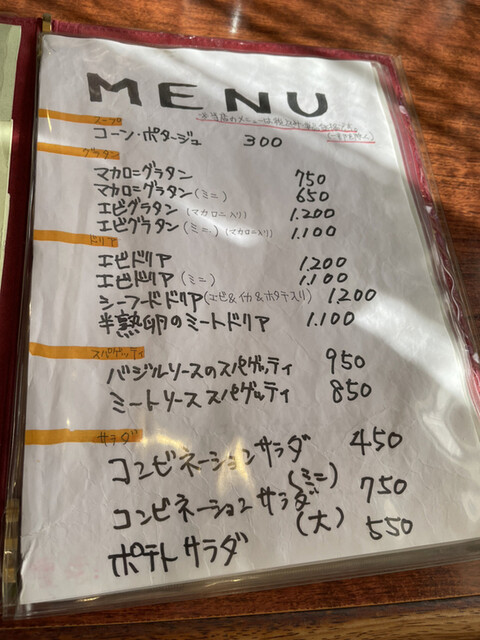 MENU
スープ
コーン・ポタージュ 300
グラタン
マカロニグラタン 750
マカロニグラタン(ミニ) 650
エビグラタン(マカロニ入り) 1.200
エビグラタン(ミニ)(マカロニ入り) 1.100
ドリア
エビドリア 1.200
エビドリア(ミニ) 1.100
シーフードドリア(エビ&イカ&ホタテ入り) 1200
半熟卵のミートドリア 1.100
スパゲッティ
バジルソースのスパゲッティ 950
ミートソーススパゲッティ 850
サラダ
コンビネーションサラダ(ミニ) 450
コンビネーションサラダ(大) 750
ポテトサラダ 550